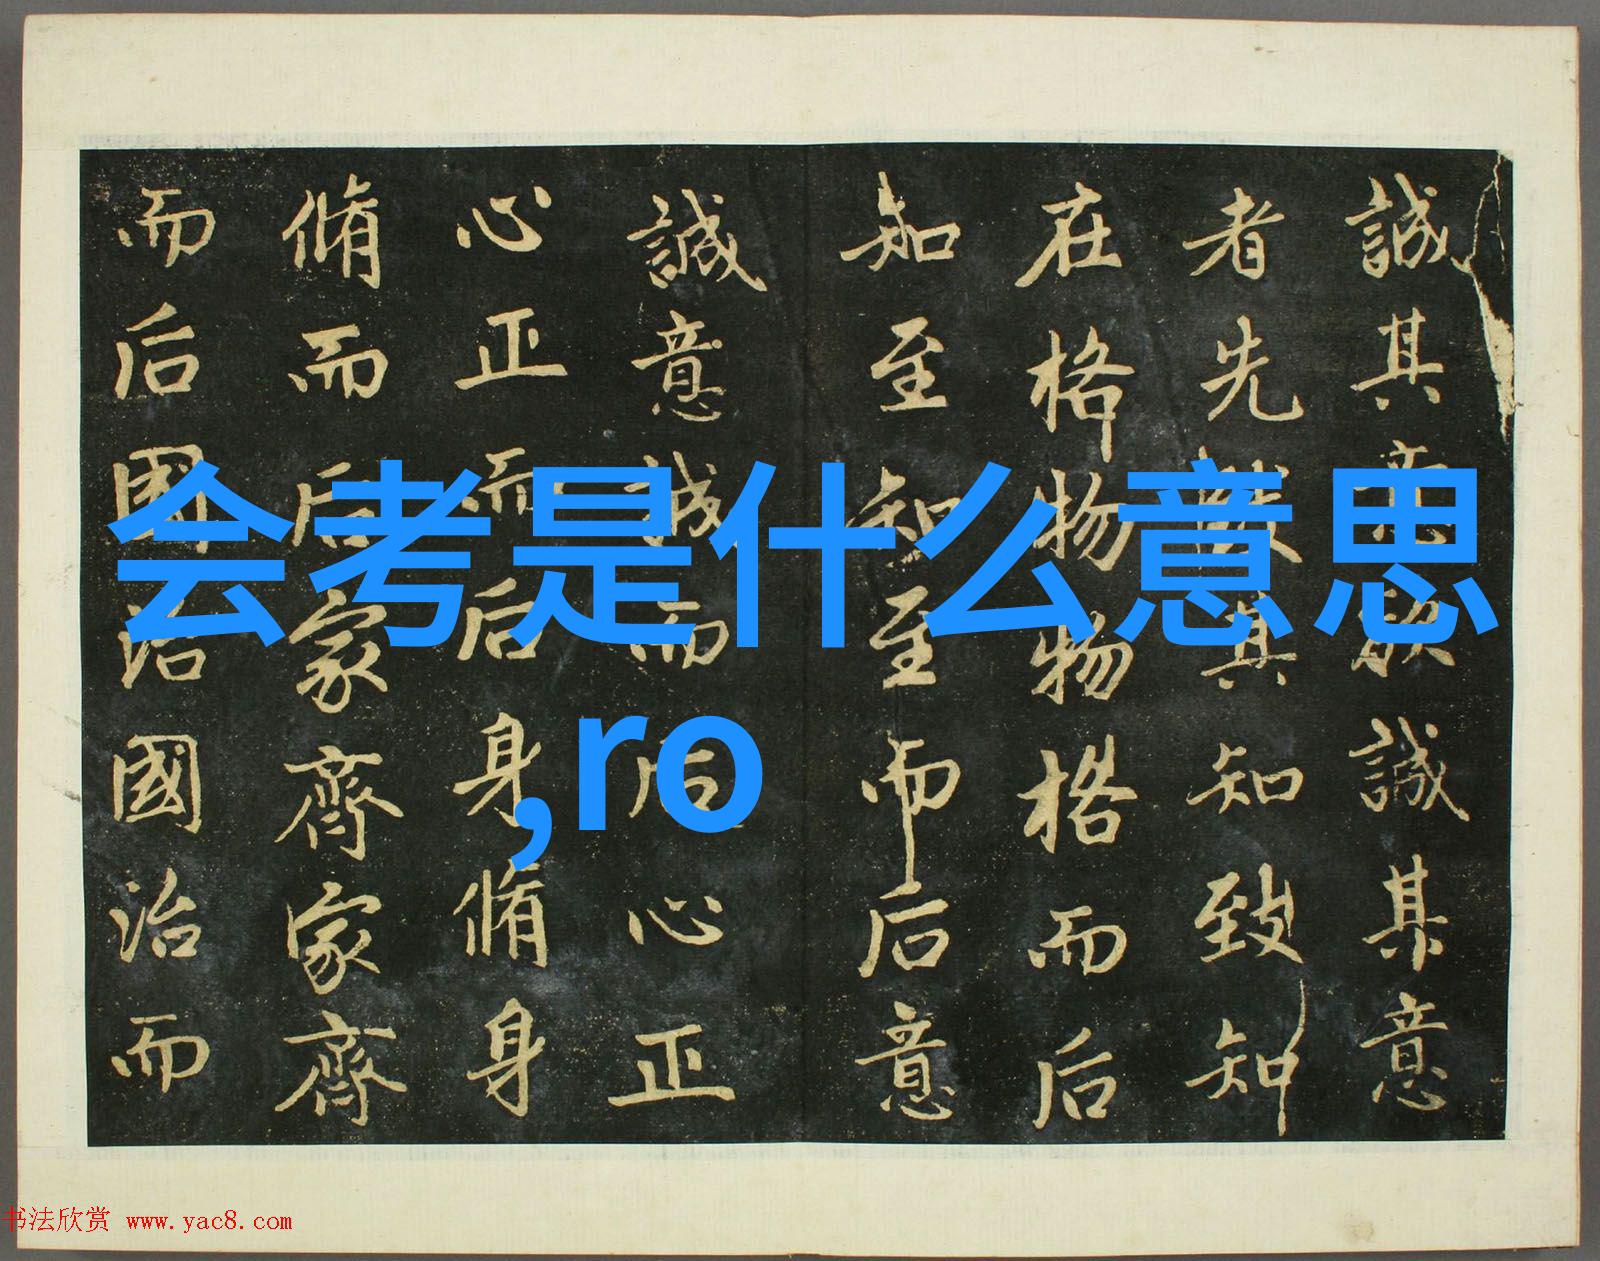 誠其意欲誠其意
者先致其知致知
在格物物格而后
知至知至而后意
誠意誠而后心正
心正而后身脩身
脩而后家齊家齊
而后國治國治而
会考是什么意思
,ro
书法欣赏 www.yac8.com